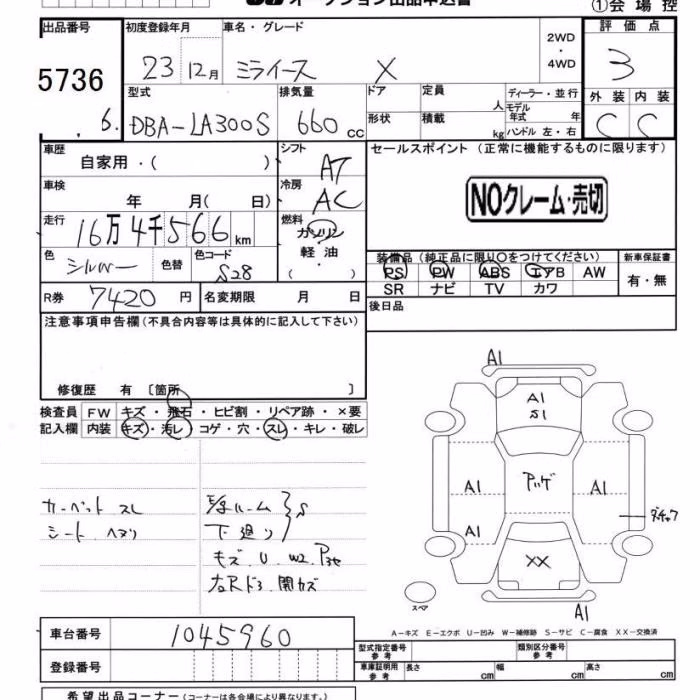 オークション出品申込書
①会場控
出品番号 初度登録年月 車名・グレード 2WD ・ 4WD 評価点
5736 23 12月 ミライース X 3
型式 排気量 ドア 定員 人 ディーラー・並行 モデル年式 年 外装 内装
6. DBA-LA300S 660 cc 形状 積載 kg ハンドル 左・右 C C
車歴 シフト セールスポイント (正常に機能するものに限ります)
自家用・( ) AT
車検 冷房 NOクレーム・売切
年 月( 日) AC
走行 燃料
16万4千566km ガソリン
軽・油
( )
色 シルバー 色替 色コード S28
装備品 (純正品に限り○をつけてください) 新車保証書
PS PW ABS エアB AW 有・無
SR ナビ TV カワ
R券 7420 円 名変期限 月 日 後日品
注意事項申告欄 (不具合内容等は具体的に記入して下さい)
修復歴 有 〔箇所 〕
検査員 FW キズ・飛石・ヒビ割・リペア跡・×要
記入欄 内装 キズ・汚レ・コゲ・穴・スレ・キレ・破レ
カーペット スレ
シート ヘタリ
ルーム S
下廻り
キズ U W2
A1
A1
S1
A1
A1
A1
XX
A1
スペア
A-キズ E-エクボ U-凹み W-補修跡 S-サビ C-腐食 XX-交換済
車台番号 1045960
登録番号
型式指定番号 参考 類別区分番号 参考
車庫証明用 参考 長さ cm 幅 cm 高さ cm
希望出品コーナー (コーナーは各会場により異なります。)